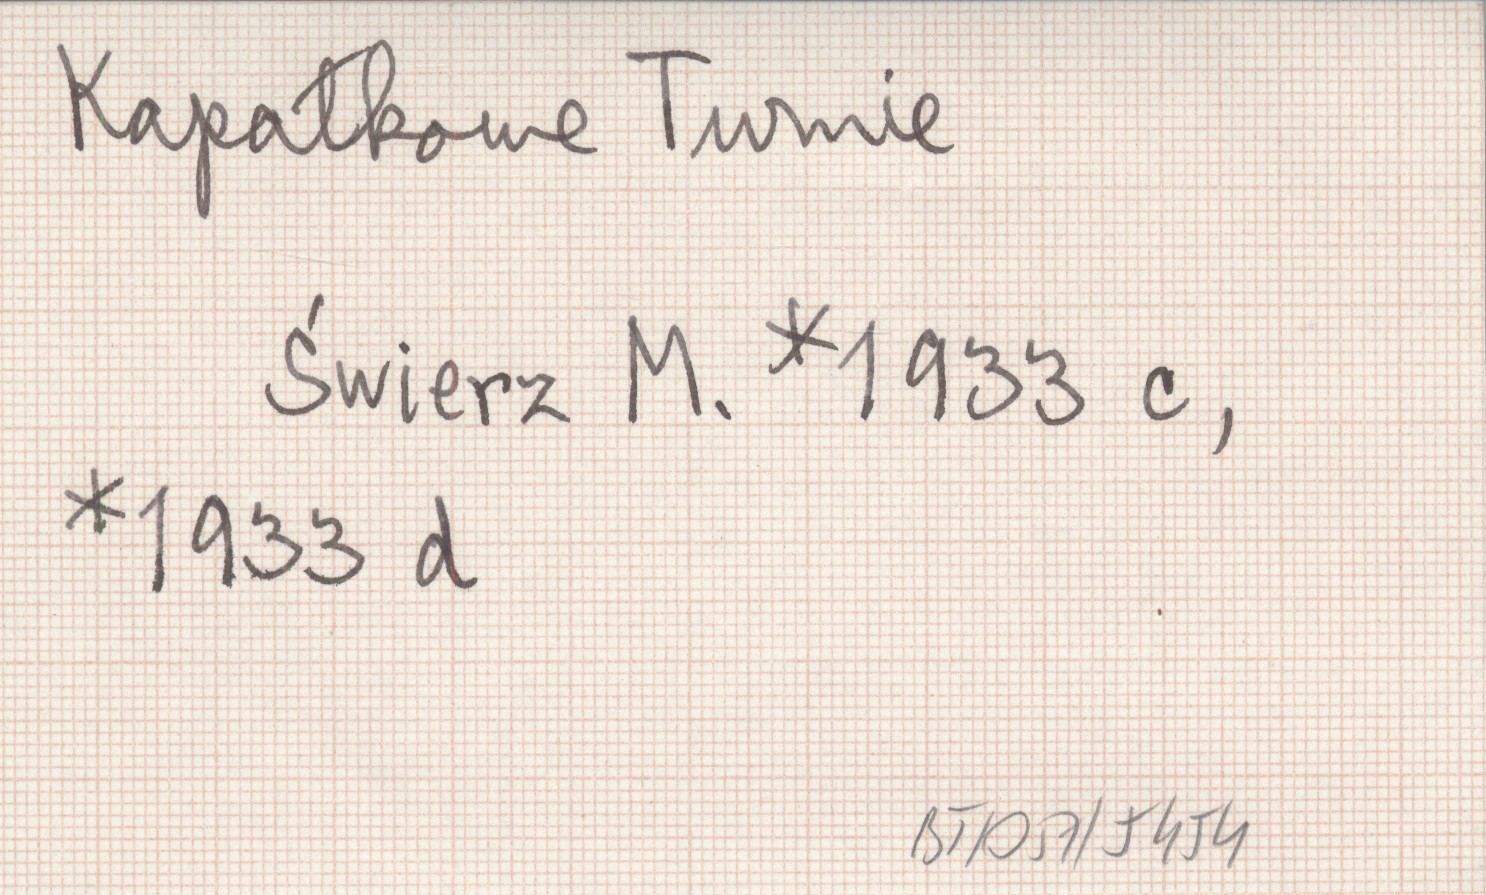 Kapałkowe Turnie
Świerz M. *1933 c,
*1933 d
BT/057/5454